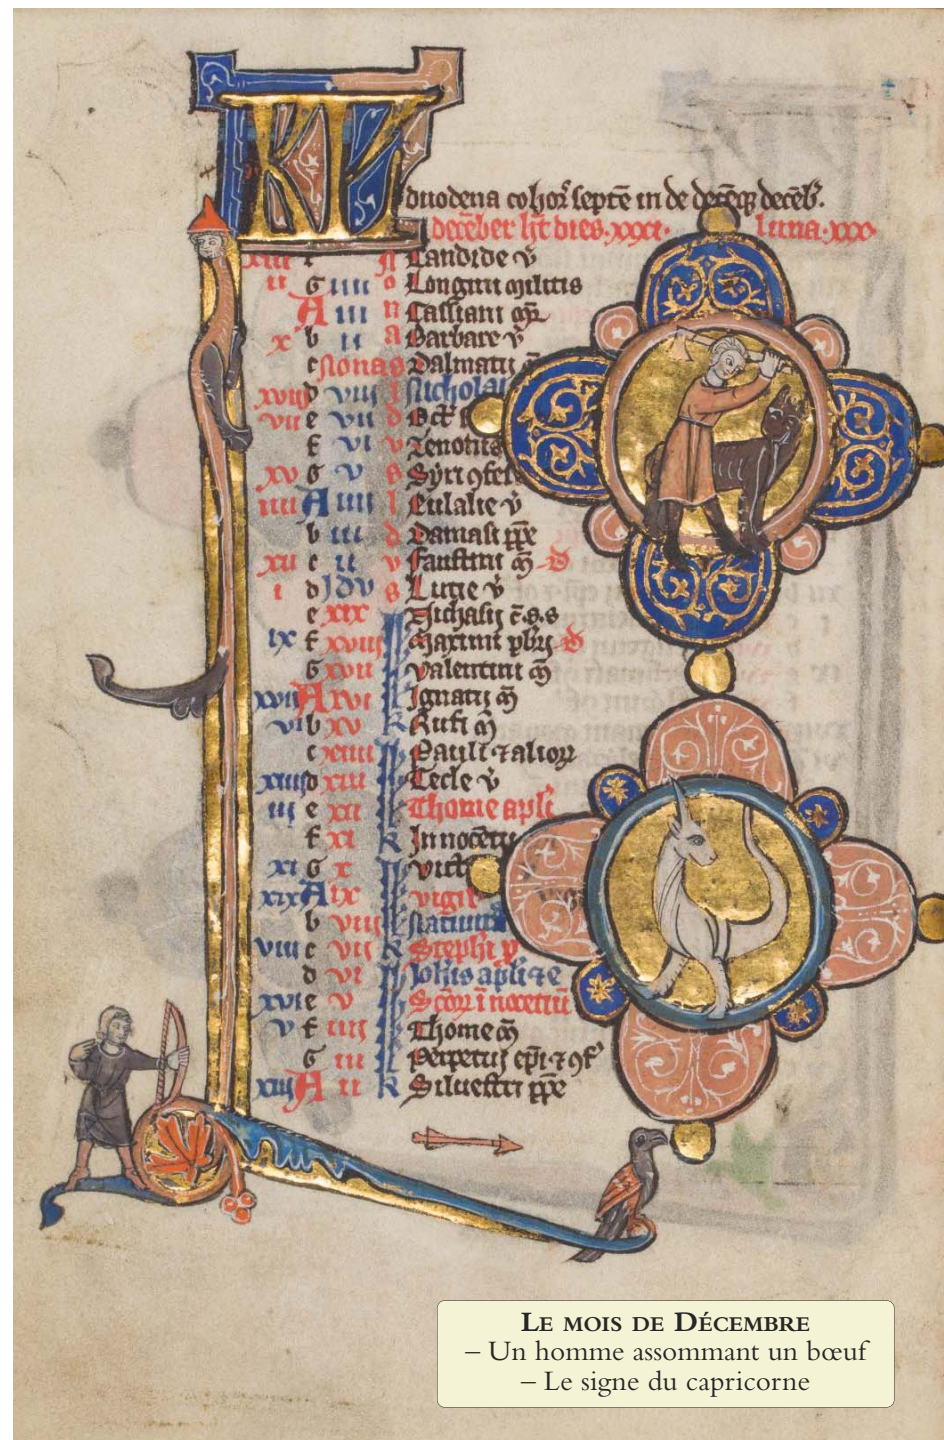 KL
duodena cohor̄ septē in de decēq; decēb.
decēber ht̄ dies.xxxi. luna.xxx.
xiii f n Candide v̄
ii G iiii o Longini militis
A iii n Cassiani m̄r
x b ii a Barbare v̄
c nonas Dalmatii m̄
xviii d viii i Nicholai
vii e vii d Oct̄
f vi v Zenonis
xv G v s Syri 9fes
iiii A iiii i Eulalie v̄
b iii d Damasi p̄p̄e
xii c ii v Faustini m̄ D
i d Idus s Lucie v̄
e xix k Nichasii
ix f xviii k Maximi p̄bri D
G xvii k Valentini m̄
xvii A xvi k Ignatii m̄
vi b xv k Rufi m̄
c xiiii k Pauli ⁊ alior
xiiii d xiii k Tecle v̄
iii e xii k Thome apli
f xi k Innocētii
xi G x k Vict
xix A ix k vigil
b viii k Nativit
viii c vii k Stephi p
d vi k Johis apli ⁊ e
xvi e v k Scōꝝ īnocentiū
v f iiii k Thome m̄
G iii k Perpetui ep̄i ⁊ 9f'
xiii A ii k Siluestri p̄p̄e
Le mois de Décembre
– Un homme assommant un bœuf
– Le signe du capricorne